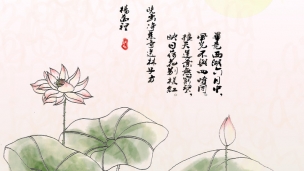 畢竟西湖六月中，
風光不與四時同。
接天蓮葉無窮碧，
映日荷花別樣紅。
曉出淨慈寺送林子方
楊萬裡